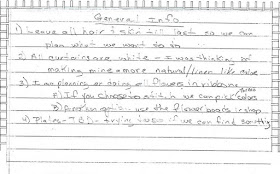 General Info
1) Leave all hair & skin till last so we can
plan what we want to do
2) All curtains are white - I was thinkin' of
making mine more natural/linen like
3) I am planning on doing all flowers in ribbon
A) If you choose to stitch we can pick colors
B) Another option - use the flower beads in shop
4) Plates - TBD - trying to see if we can find something